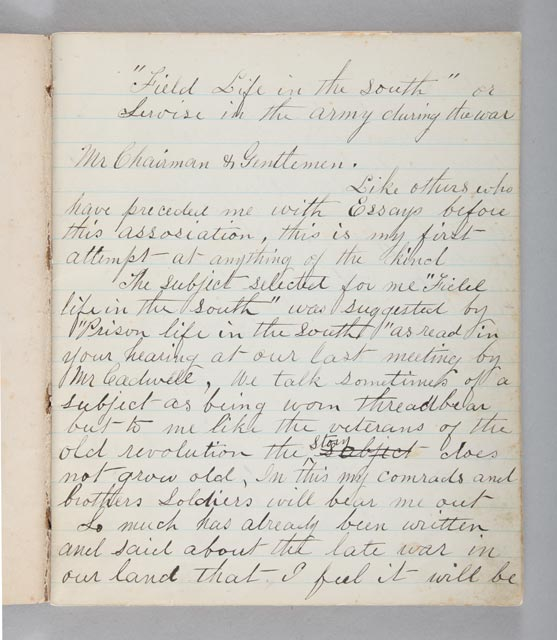 "Field Life in the South" or
Servise in the army during the war
Mr Chairman & Gentlemen.
Like others who
have preceded me with Essays before
this association, this is my first
attempt at anything of the kind
The subject selected for me "Field
life in the South" was suggested by
"Prison life in the South" as read in
your hearing at our last meeting by
Mr Cadwell, We talk sometimes of a
subject as being worn threadbear
but to me like the veterans of the
old revolution the story subject does
not grow old, In this my comrads and
brothers Soldiers will bear me out
So much has already been written
and said about the late war in
our land that I feel it will be